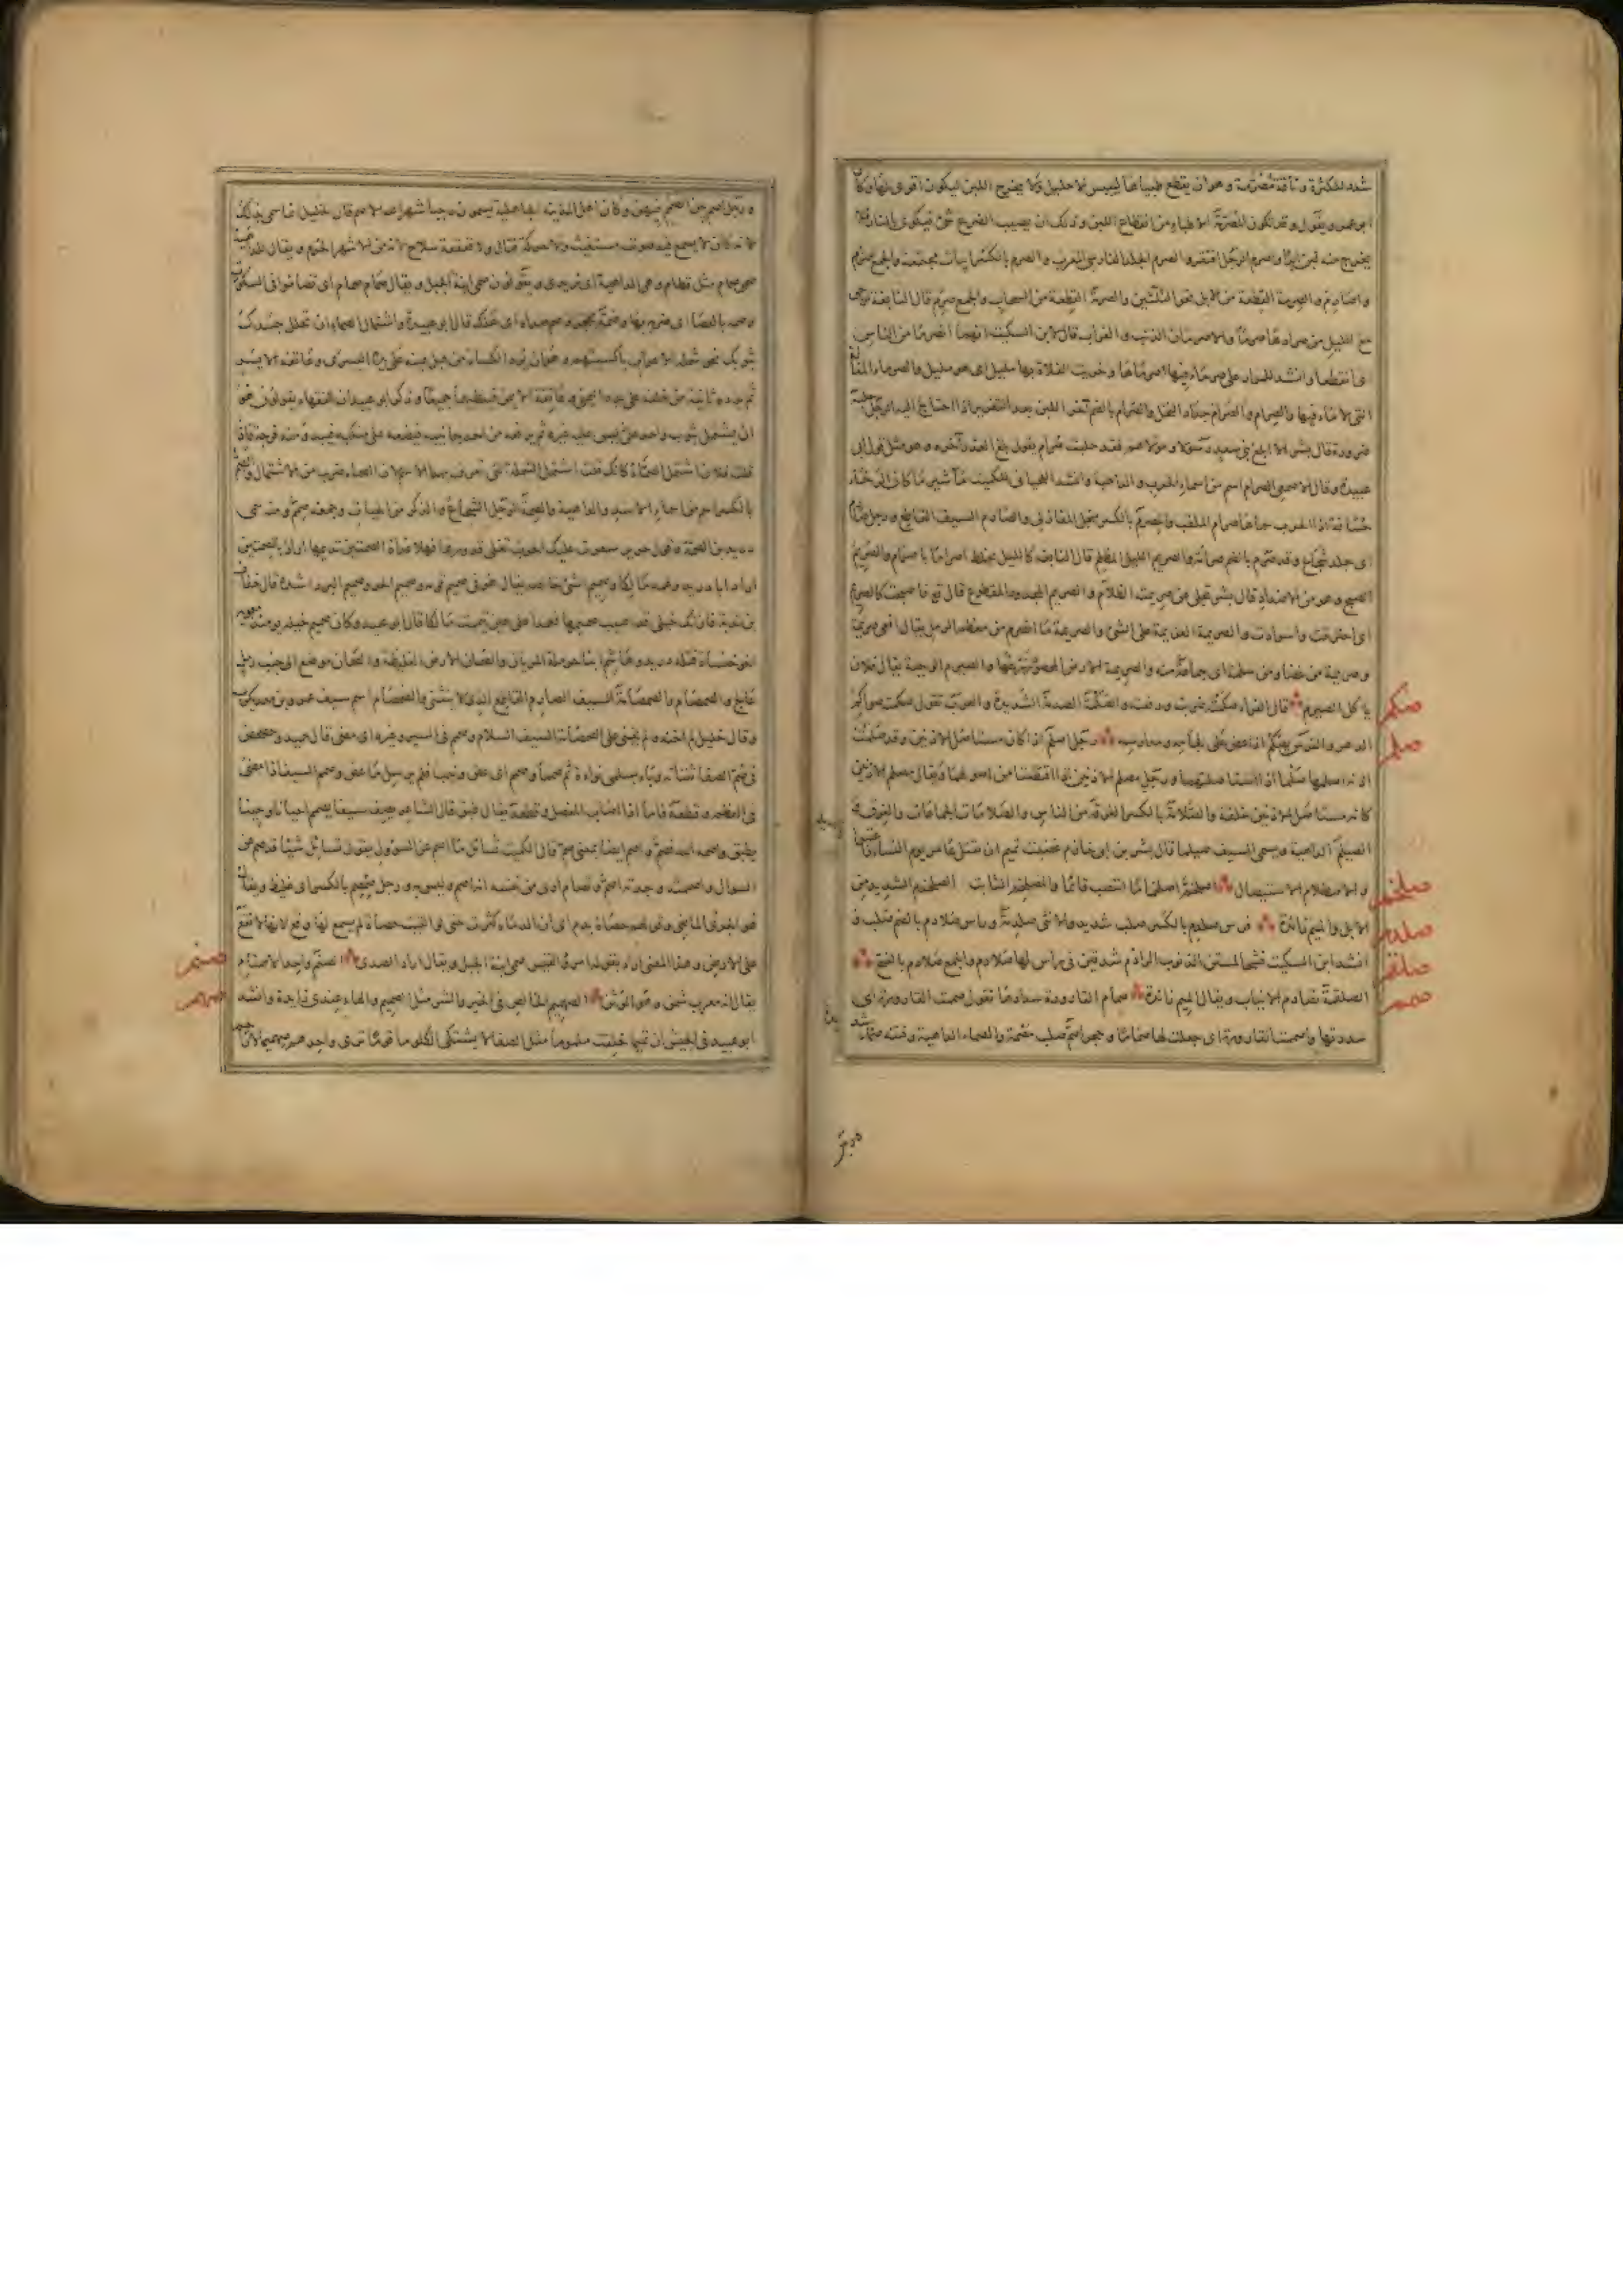 شدد للكثرة وناقة مصرمة وهو ان يقطع طبياها لييبس الاحليل ولا يخرج اللبن ليكون اقوى لها وكان
ابو عمرو يقول وقد تكون المصرمة الاطباء من انقطاع اللبن وذلك ان يصيب الضرع شئ فيكوى بالنار فلا
يخرج منه لبن ابدا واصرم الرجل افتقر والصرم الجلد فارسى معرب والصرم بالكسر ابيات مجتمعة والجمع اصرام
واصارم والصرمة القطعة من الابل نحو الثلثين والصرمة القطعة من السحاب والجمع صرم قال النابغة تزجى
مع الليل من صرادها صرما والاصرمان الذئب والغراب قال ابن السكيت لانهما انصرما من الناس
اى انقطعا وانشد للمرار على صرماء فيها اصرماها وخريت الفلاة بها مليل اى هو مليل والصرماء المفازة
التى لا ماء فيها والصرام والصرام جداد النخل والصرام بالضم آخر اللبن بعد التغزير اذا احتاج اليه الرجل حلبه
ضرورة قال بشر الا ابلغ بنى سعد رسولا ومولاهم فقد حلبت صرام يقول بلغ العذر آخره وهو مثل قول ابى
عبيدة وقال الاصمعى الصرام اسم من اسماء الحرب والداهية وانشد اللحيانى للكميت مآشير ما كان الرخاء
حشافة اذا الحرب سماها صرام الملقب والصرم بالكسر الخف المنعل والصارم السيف القاطع ورجل صارم
اى جلد شجاع وقد صرم بالضم صرامة والصريم الليل المظلم قال النابغة كالليل يخلط اصراما باصرام والصريم
الصبح وهو من الاضداد قال بشر تجلى عن صريمته الظلام والصريم المجدود المقطوع قال تع فاصبحت كالصريم
اى احترقت واسودت والصريمة العزيمة على الشئ والصريمة ما انصرم من معظم الرمل يقال افعى صريمة
وصريمة من غضا ومن سلم اى جماعة منه والصريمة الارض المحصود زرعها والصيرم الوجبة يقال فلان
ياكل الصيرم قال الفراء صكمته ضربته ودفعته والصكمة الصدمة الشديدة والعرب تقول صكمته صواكم
صكم
الدهر والفرس يصكم اذا عض على لجامه ومد راسه رجل اصلم اذا كان مستاصل الاذنين وقد صلمت
صلم
اذنه اصلمها صلما اذا استاصلتها ورجل مصلم الاذنين اذا اقتطعتا من اصولهما ويقال للظليم مصلم الاذنين
كانه مستاصل الاذنين خلقة والصلامة بالكسر الفرقة من الناس والصلامات الجماعات والفرق
الصيلم الداهية ويسمى السيف صيلما قال بشر بن ابى خازم غضبت تميم ان تقتل عامر يوم النسار فاعتبوا
والاصطلام الاستيصال اصلخم اصلخماما انتصب قائما والمصلخم الثابت الصلخم الشديد من
صلخم
الابل والميم زائدة فرس صلدم بالكسر صلب شديد والانثى صلدمة وراس صلادم بالضم صلب
صلدم
انشد ابن السكيت من كل كوماء السنام والجمع صلادم بالفتح
صلقم
الصلقمة تصادم الانياب ويقال الميم زائدة صمام القارورة سدادها تقول صممت القارورة اى
صمم
سددتها واصممت القارورة اى جعلت لها صماما وحجر اصم صلب مصمت والصماء الداهية وفتنة صماء شديدة
ورجل اصم بين الصمم فيهن وكان اهل الجاهلية يسمون رجبا شهر الله الاصم قال الخليل انما سمى بذلك
لانه كان لا يسمع فيه صوت مستغيث ولا حركة قتال ولا قعقعة سلاح لانه من الاشهر الحرم ويقال للداهية
صمى صمام مثل قطام وهى الداهية اى زيدى ويقولون صمى ابنة الجبل ويقال صمام صمام اى تصاموا فى السكوت
وصمه بالعصا اى ضربه بها وصمه بحجر وصم صداه اى هلك قال ابو عبيدة واشتمال الصماء ان تجلل جسدك
بثوبك نحو شملة الاعراب باكسيتهم وهو ان يرد الكساء من قبل يمينه على يده اليسرى وعاتقه الايسر
ثم يرده ثانية من خلفه على يده اليمنى وعاتقه الايمن فيغطيهما جميعا وذكر ابو عبيد ان الفقهاء يقولون هو
ان يشتمل بثوب واحد ليس عليه غيره ثم يرفعه من احد جانبيه فيضعه على منكبه فيبدو منه فرجه فاذا
قلت اشتمل فلان الصماء كانك قلت اشتمل الشملة التى تعرف بهذا الاسم لان الصماء ضرب من الاشتمال والصم
بالكسر من اسماء الاسد والداهية والصمة الرجل الشجاع والذكر من الحيات وجمعه صمم ومنه سمى
دريد بن الصمة وقول جرير سعرت عليك الحرب تغلى قدورها فهلا غداة الصمتين تديمها اراد بالصمتين
ابا دريد وعمه مالكا وصميم الشئ خالصه يقال هو فى صميم قومه وصميم الحر وصميم البرد اشده قال خفاف
بن ندبة فان تك خيلى قد اصيب صميمها فعمدا على عين تيممت مالكا قال ابو عبيد وكان صميم خيله يومئذ معوية
اخو خنساء قتله دريد وهاشم ابنا حرملة المريان والصمان الارض الغليظة والصمان موضع الى جنب رمل
عالج والصمصام والصمصامة السيف الصارم القاطع الذى لا ينثنى والصمصام اسم سيف عمرو بن معديكرب
وقال خليل لم اخنه ولم يخنى على الصمصامة السيف السلام وصمم فى السير وغيره اى مضى قال حميد وحصحص
فى صم الصفا ثفناته وناء بسلمى نوءة ثم صمما وصمم اى عض ونيب فلم يرسل ما عض وصمم السيف اذا مضى
فى العظم وقطعه فاما اذا اصاب المفصل وقطعه يقال طبق قال الشاعر يصف سيفا يصمم احيانا وحينا
يطبق واصمه الله فصم واصم ايضا بمعنى صم قال الكميت تسائل ما اصم عن السؤول يقول تسائل شيئا قد صم عن
السوال واصممته وجدته اصم وتصام ارى من نفسه انه اصم وليس به ورجل صمصم بالكسر اى غليظ ويقال
هو الجرئ الماضى وقولهم صمت حصاة بدم اى ان الدماء كثرت حتى لو القيت حصاة لم يسمع لها وقع لانها لا تقع
على الارض وهذا المعنى اراد بقوله امرؤ القيس صمى ابنة الجبل ويقال اراد الصدى الصنم واحد الاصنام
صنم
يقال انه معرب شمن وهو الوثن الصهميم الخالص فى الخير والشر مثل الصميم والهاء عندى زائدة وانشد
صهم
ابو عبيد للمخيس ان تميما خلقت ملموما مثل الصفا لا يشتكى الكلوما قوما ترى واحدهم صهميما